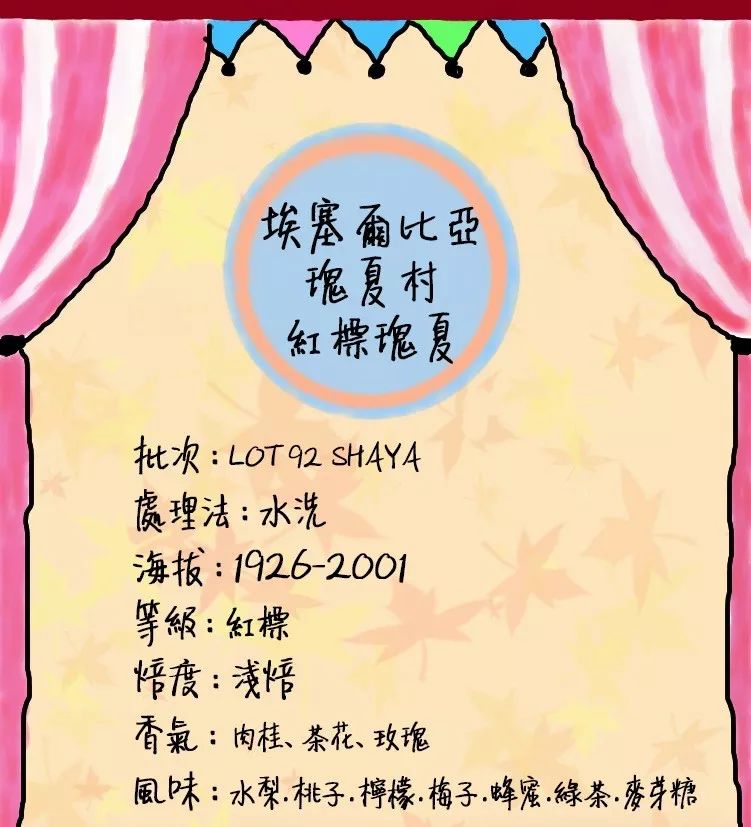 埃塞爾比亞
瑰夏村
紅標瑰夏
批次：LOT92 SHAYA
處理法：水洗
海拔：1926-2001
等級：紅標
焙度：淺焙
香氣：肉桂、茶花、玫瑰
風味：水梨.桃子.檸檬.梅子.蜂蜜.綠茶.麥芽糖